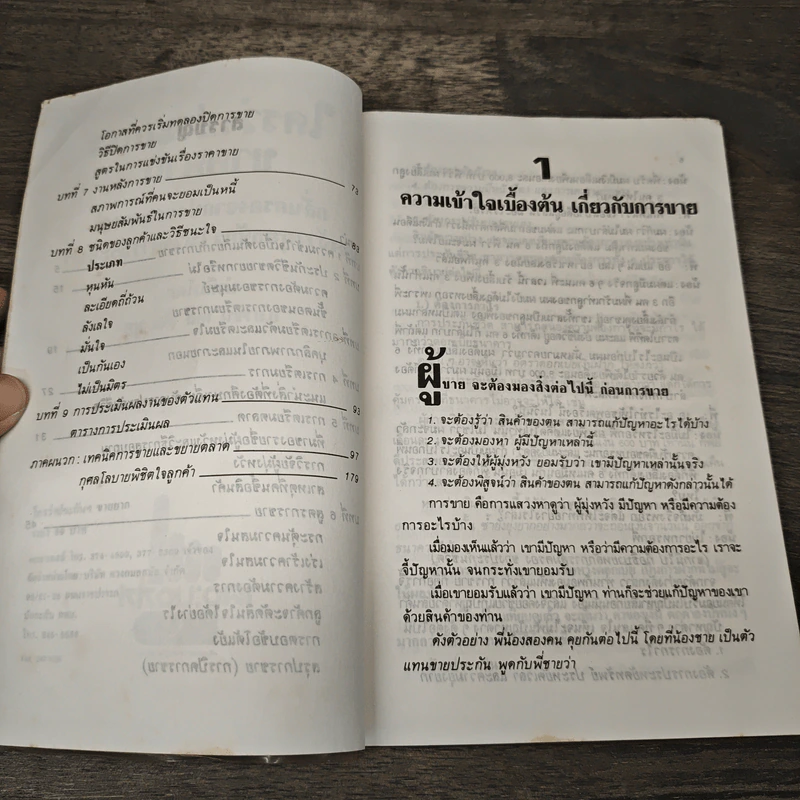 โอกาสที่ควรเริ่มทดลองปิดการขาย
วิธีปิดการขาย
สูตรในการแข่งขันเรื่องราคาขาย
บทที่ 7 งานหลังการขาย 73
สภาพการณ์ที่คนจะยอมเป็นหนี้
มนุษยสัมพันธ์ในการขาย
บทที่ 8 ชนิดของลูกค้าและวิธีชนะใจ 83
ประเภท
หุนหัน
ละเอียดถี่ถ้วน
ลังเลใจ
มั่นใจ
เป็นกันเอง
ไม่เป็นมิตร
บทที่ 9 การประเมินผลงานของตัวแทน 93
ตารางการประเมินผล
ภาคผนวก : เทคนิคการขายและขยายตลาด 97
กุศโลบายพิชิตใจลูกค้า 179
1
ความเข้าใจเบื้องต้น เกี่ยวกับการขาย
ผู้ขาย จะต้องมองสิ่งต่อไปนี้ ก่อนการขาย
1. จะต้องรู้ว่า สินค้าของตน สามารถแก้ปัญหาอะไรได้บ้าง
2. จะต้องมองหา ผู้มีปัญหาเหล่านี้
3. จะต้องให้ผู้มุ่งหวัง ยอมรับว่า เขามีปัญหาเหล่านั้นจริง
4. จะต้องพิสูจน์ว่า สินค้าของตน สามารถแก้ปัญหาดังกล่าวนั้นได้
การขาย คือการแสวงหาดูว่า ผู้มุ่งหวัง มีปัญหา หรือมีความต้อง
การอะไรบ้าง
เมื่อมองเห็นแล้วว่า เขามีปัญหา หรือว่ามีความต้องการอะไร เราจะ
จี้ปัญหานั้น จนกระทั่งเขายอมรับ
เมื่อเขายอมรับแล้วว่า เขามีปัญหา ท่านก็จะช่วยแก้ปัญหาของเขา
ด้วยสินค้าของท่าน
ดังตัวอย่าง พี่น้องสองคน คุยกันต่อไปนี้ โดยที่น้องชาย เป็นตัว
แทนขายประกัน พูดกับพี่ชายว่า